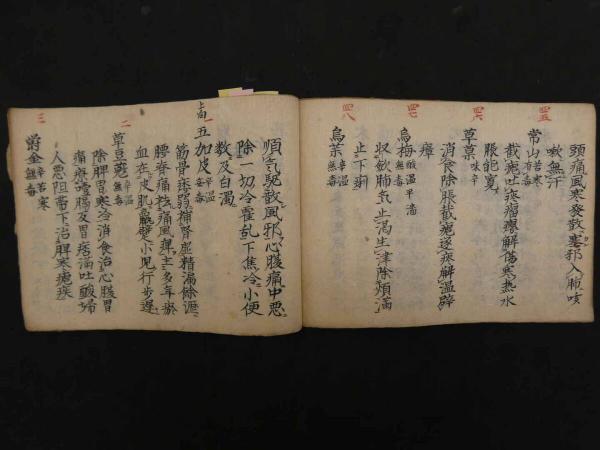 頭痛風寒發散寒邪入肺咳
嗽無汗
四五
常山 苦寒 有毒
截瘧吐痰瘤瘰解傷寒熱水
脹能寬
四六
草菓 味辛
消食除脹截瘧逐痰解溫辟
瘴
四七
烏梅 酸溫平濇
収斂肺氣止渴生津除煩滿
止下痢
四八
烏茱 辛溫 無毒
順氣駝散風邪心腹痛中惡
除一切冷霍乱下焦冷小便
數及白濁
上向
一
五加皮 辛溫 無毒
腰脊痛
筋骨
補腎虛精漏除
風痺主多年瘀
血在皮肌
小児行步遲
二
草豆蔻 辛溫 無毒
除脾胃寒冷消食治心腹胃
痛
及胃
滿吐酸婦
人惡阻
下治脾寒瘧疾
三
欝金 辛苦寒 無毒